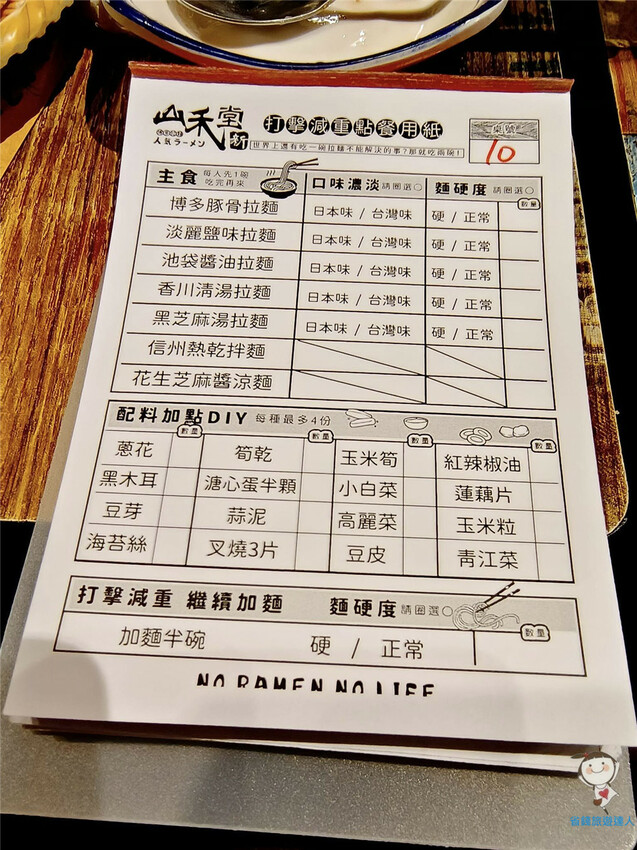 山禾堂
新
人氣ラーメン
打擊減重點餐用紙
世界上還有吃一碗拉麵不能解決的事?那就吃兩碗!
桌號
10
主食 每人先1碗 吃完再來 口味濃淡 請圈選○ 麵硬度 請圈選○ 數量
博多豚骨拉麵 日本味 / 台灣味 硬 / 正常
淡麗鹽味拉麵 日本味 / 台灣味 硬 / 正常
池袋醬油拉麵 日本味 / 台灣味 硬 / 正常
香川清湯拉麵 日本味 / 台灣味 硬 / 正常
黑芝麻湯拉麵 日本味 / 台灣味 硬 / 正常
信州熱乾拌麵
花生芝麻醬涼麵
配料加點DIY 每種最多4份
數量 數量 數量 數量
蔥花 筍乾 玉米筍 紅辣椒油
黑木耳 溏心蛋半顆 小白菜 蓮藕片
豆芽 蒜泥 高麗菜 玉米粒
海苔絲 叉燒3片 豆皮 青江菜
打擊減重 繼續加麵 麵硬度 請圈選○ 數量
加麵半碗 硬 / 正常
NO RAMEN NO LIFE
省錢旅遊達人